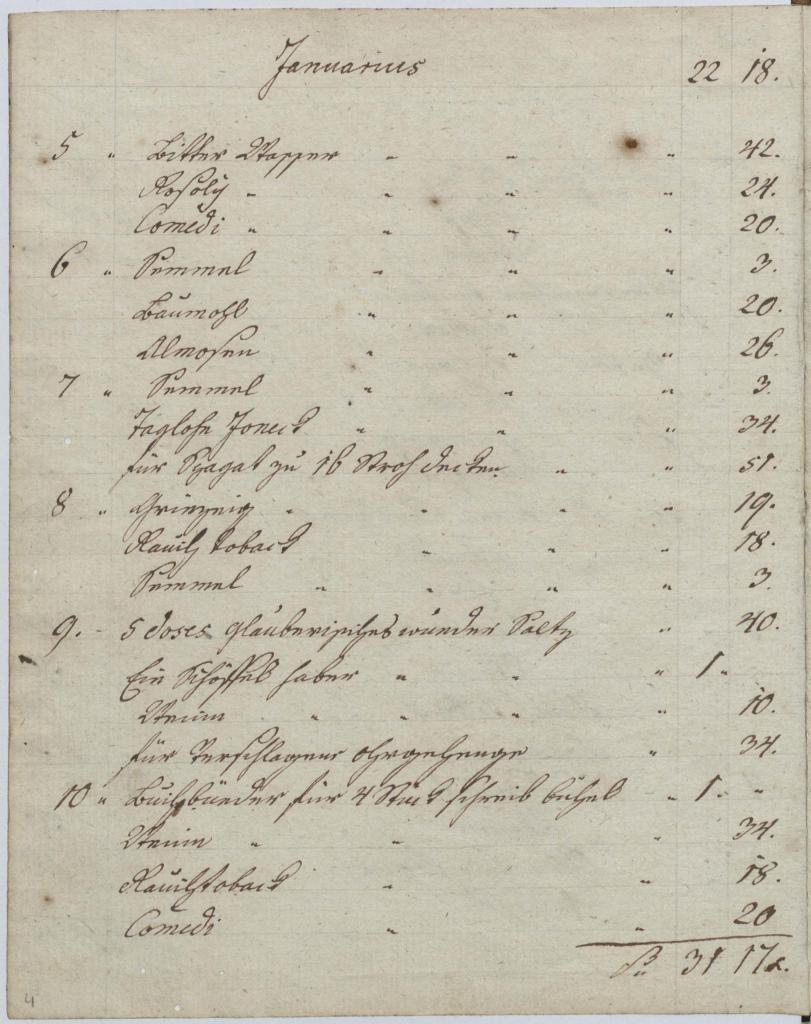 Januarius 22 18.
5 " Bitter Wasser " " " 42.
Rosoly " " " " 24.
Comedi " " " " 20.
6 " Semmel " " " 3.
Baumohl " " " 20.
Almosen " " " 26.
7 " Semmel " " " 3.
Taglohn " " " 34.
für Spagat zu 16 Strohdecken " " 51.
8 " Grinzeig " " " " 19.
Rauch toback " " " 18.
Semmel " " " " 3.
9. - 5 doses glauberisches wunder Saltz " 40.
Ein Schöffel haber " " " 1 "
" " " " 10.
für ohrgehenge " 34.
10 " Buchbünder für 4 Stück schreib büchel " 1. "
" " " 34.
Rauchtoback " " 18.
Comedi " " 20
31 17
4